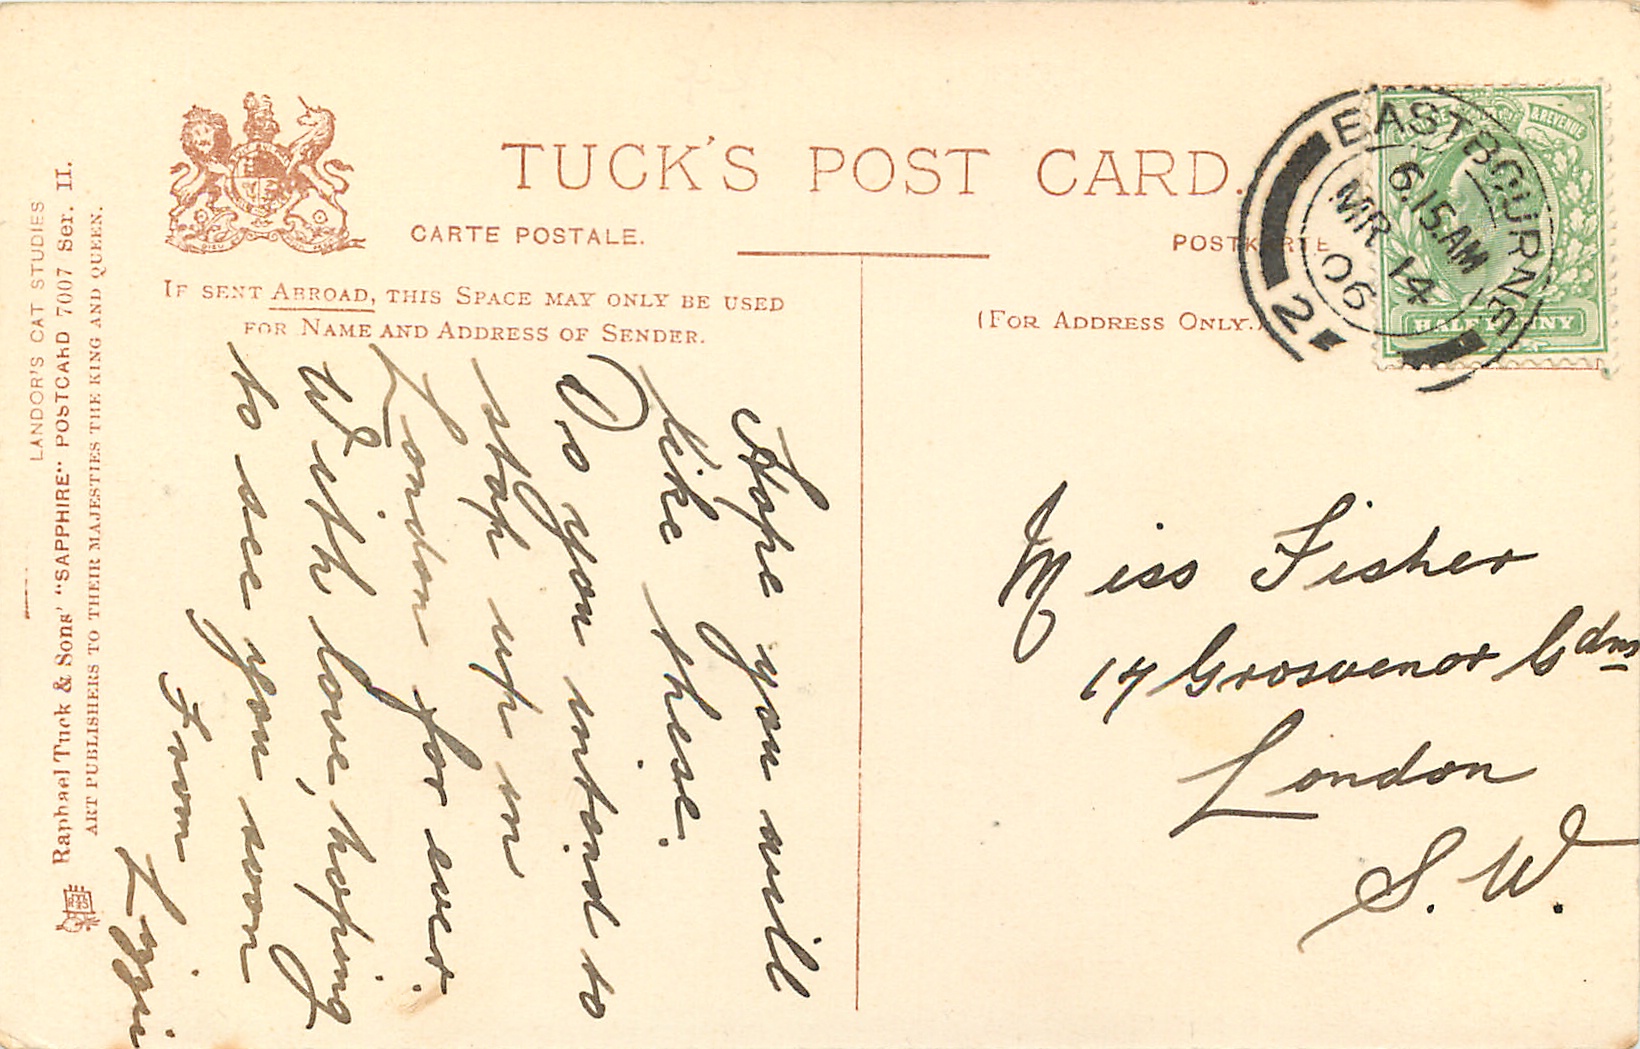 TUCK'S POST CARD.
CARTE POSTALE.
POSTKARTE
IF SENT ABROAD, THIS SPACE MAY ONLY BE USED
FOR NAME AND ADDRESS OF SENDER.
(FOR ADDRESS ONLY.)
LANDOR'S CAT STUDIES
Raphael Tuck & Sons' "SAPPHIRE" POSTCARD 7007 Ser. II.
ART PUBLISHERS TO THEIR MAJESTIES THE KING AND QUEEN.
Hope you will
like these.
Do you intend to
stop up in
London for ever.
With love, hoping
to see you soon
From
Lizzie
EASTBOURNE
6.15AM
MR 14
06
2
& REVENUE
HALFPENNY
Miss Fisher
17 Grosvenor Gdns
London
S.W.